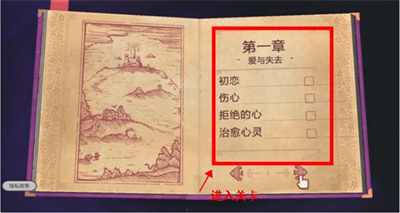 第一章
- 爱与失去 -
初恋
伤心
拒绝的心
治愈心灵
进入关卡
隐私政策